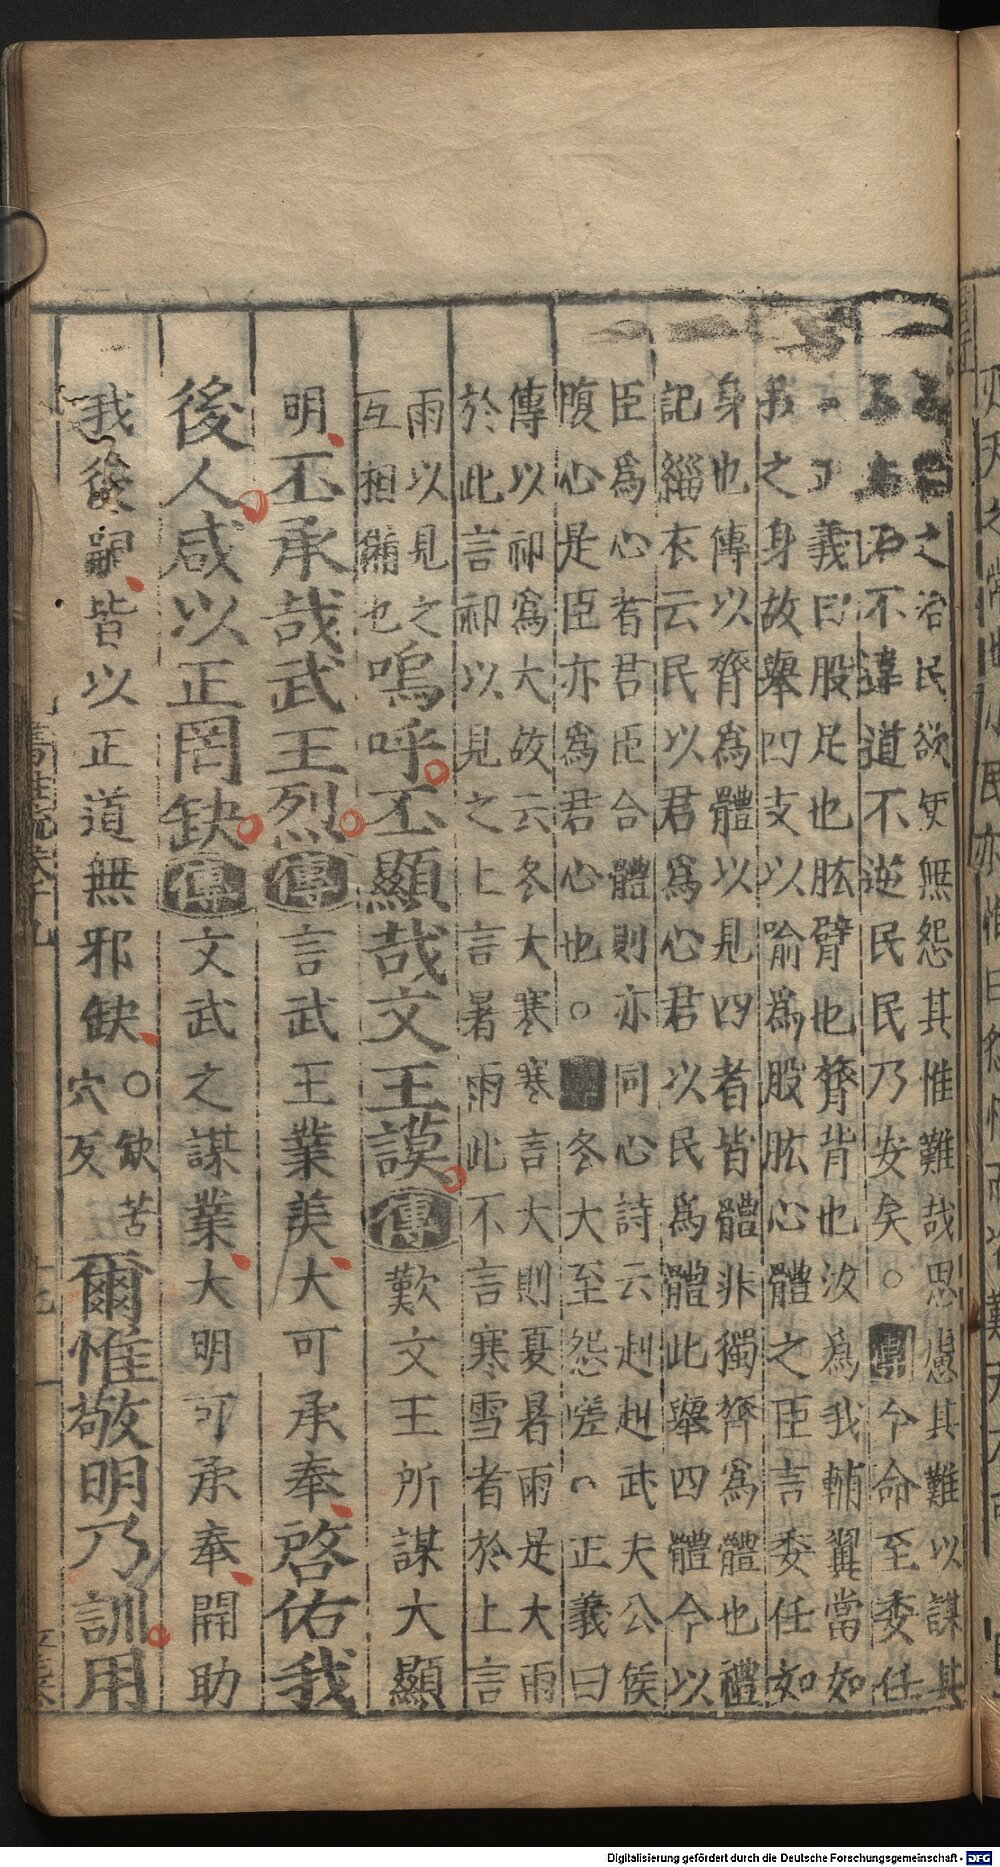 之治民欲使無怨其惟難哉思慮其難以謀其
不違道不逆民民乃安矣○傳今命至委任
義曰股足也肱臂也膂背也汝爲我輔翼當如
我之身故舉四支以喻爲股肱心體之臣言委任如
身也傳以膂爲體以見四者皆體非獨膂爲體也禮
記緇衣云民以君爲心君以民爲體此舉四體今以
臣爲心者君臣合體則亦同心詩云赳赳武夫公侯
腹心是臣亦爲君心也○冬大至怨嗟○正義曰
傳以祁爲大故云冬大寒寒言大則夏暑雨是大雨
於此言祁以見之上言暑雨此不言寒雪者於上言
雨以見之
互相備也
嗚呼丕顯哉文王謨傳歎文王所謀大顯
明丕承哉武王烈傳言武王業美大可承奉啓佑我
後人咸以正罔缺傳文武之謀業大明可承奉開助
我後嗣皆以正道無邪缺○缺苦
穴反
爾惟敬明乃訓用
Digitalisierung gefördert durch die Deutsche Forschungsgemeinschaft - DFG